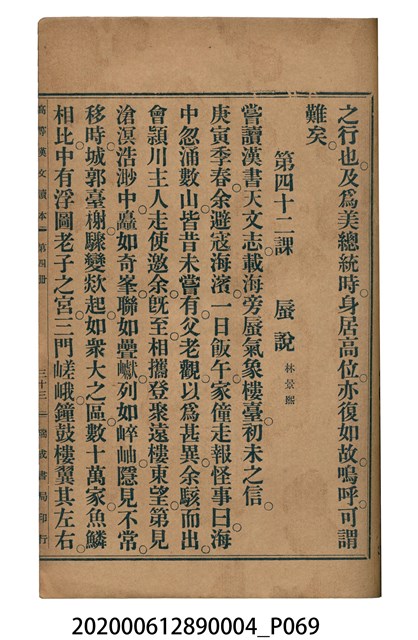 之行也。及爲美總統時。身居高位。亦復如故。嗚呼。可謂
難矣。
第四十二課　蜃說　林景熙
嘗讀漢書天文志。載海旁蜃氣象樓臺。初未之信。
庚寅季春。余避寇海濱。一日飯午。家僮走報怪事。曰海
中忽涌數山。皆昔未嘗有。父老觀以爲甚異。余駭而出。
會潁川主人走使邀余。旣至。相攜登聚遠樓東望。第見
滄溟浩渺中。矗如奇峯。聯如疊巘。列如崒岫。隱見不常。
移時。城郭臺榭。驟變欻起。如衆大之區。數十萬家。魚鱗
相比。中有浮圖老子之宮。三門嵯峨。鐘鼓樓翼其左右。
高等漢文讀本　第四册　三十三　普成書局印行
202000612890004_P069